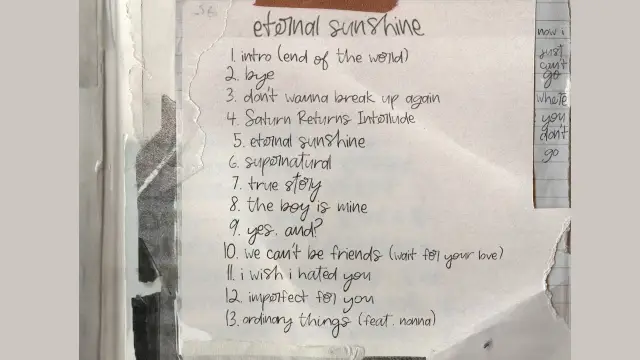 eternal sunshine
1. intro (end of the world)
2. bye
3. don't wanna break up again
4. Saturn Returns Interlude
5. eternal sunshine
6. supernatural
7. true story
8. the boy is mine
9. yes, and?
10. we can't be friends (wait for your love)
11. i wish i hated you
12. imperfect for you
13. ordinary things (feat. nonna)
now i
just
can't
go
where
you
don't
go